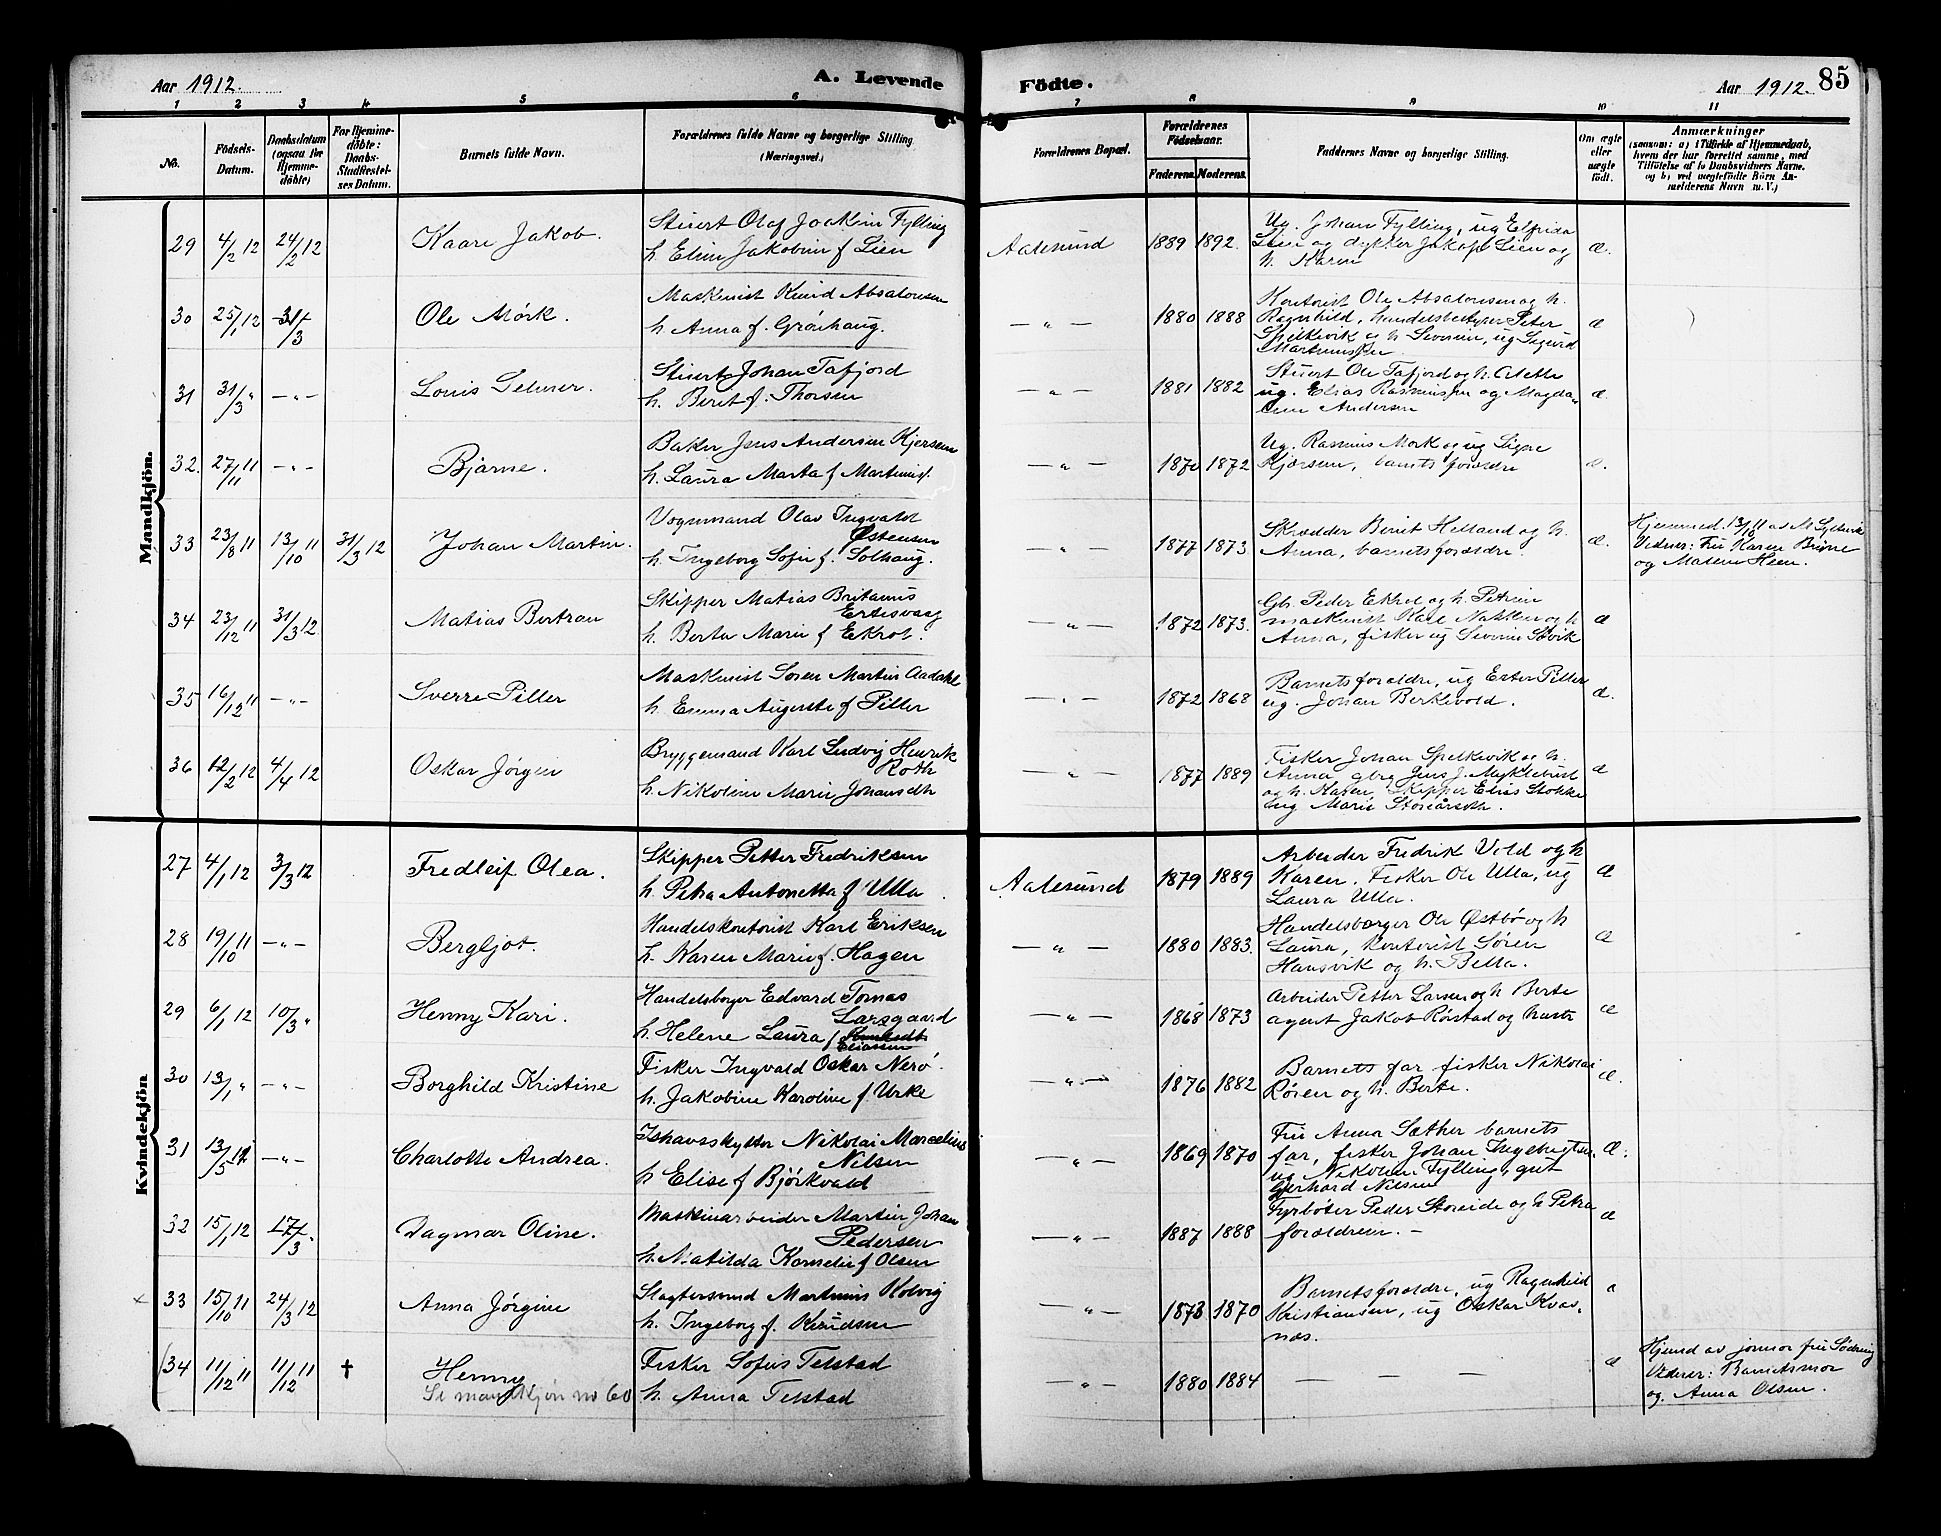 Aar 1912. A. Levende Födte. Aar 1912. 85
1 2 3 4 5 6 7 8 9 10 11
No.
Födsels-Datum.
Daabsdatum (ogsaa for Hjemme-döbte)
For Hjemme-döbte: Daabs-Stadfæstel-ses Datum.
Barnets fulde Navn.
Forældrenes fulde Navne og borgerlige Stilling. (Næringsvei.)
Forældrenes Bopæl.
Forældrenes Födselsaar.
Faderens. Moderens.
Faddernes Navne og borgerlige Stilling.
Om ægte eller uægte födt.
Anmærkninger
(saasom: a) i Tilfælde af Hjemmedaab, hvem der har forrettet samme, med Tilföielse af to Daabsvidners Navne, og b) ved uægtefödte Börn An-melderens Navn m. V.)
Mandkjön.
29 4/2 12 24/2 12 Kaare Jakob. Stuert Olaf Joakim Fylling
h. Elin Jakobine f Lien
Aalesund 1889 1892. Ug. Johan Fylling, ug Elfrida
Lien og dykker Jakob Lien og
h. Karen
æ.
30 25/1 12 31/3 Ole Mörk. Maskinist Knud Absalonsen
h. Anna f. Grönhaug.
— " — 1880 1888 Kontorist Ole Absalonsen og h.
Ragnhild, handelsbestyrer Peter
Spelkevik og h Severine, ug Sigurd
æ
31 31/3 " — " — Louis Selmer. Stuert Johan Tafjord
h. Beret f. Thorsen
— " — 1881 1882 Stuert Ole Tafjord og h. Alette
ug. Elias Rasmussen og Magda-
lene Andersen
æ.
32. 27/11 11 — " — Bjarne. Baker Jens Andersen Kjersem
h. Laura Marta f Martinusd.
— " — 1870 1872 Ug. Rasmus Mork og ug Signe
Kjersem, barnets forældre
æ.
33 23/8 11 13/10 11 31/3 12 Johan Martin. Vognmand Olav Ingvald
Østensen
h. Ingeborg Sofie f. Solhaug.
— " — 1877 1873. Skrædder Berut Helland og h.
Anna, barnets forældre.
æ.
Hjemmed. 13/10 11 av M. Syltevik
Vidner: Fru Karen Brune
og Madame Heen.
34 23/12 11 31/3 12. Matias Bertran Skipper Matias Britanus
Ertesvaag
h. Berte Marie f Ekrot.
— " — 1872 1873. Gb. Peder Ekrot og h. Petrine
maskinist Karl Nakken og h
Anna, fisker ug Severin Søvik
æ
35 16/12 11 — " — Sverre Piller Maskinist Soren Martin Aadahl
h. Emma Auguste f Piller
— " — 1872 1868 Barnets forældre, ug Ester Piller
ug. Johan Berkevold.
æ.
36 12/2 12 4/4 12 Oskar Jörgen Bryggemand Karl Ludvig Henrik
Roth
h. Nikoline Marie Johansdtr
— " — 1877 1889 Fisker Johan Spelkevik og h.
Anna, gbr Jens J. Myklebust
og h. Karen, Skipper Elias Stokke
ug Marie
æ
Kvindekjön
27 4/1 12 3/3 12 Fredleif Olea. Skipper Petter Fredriksen
h. Petra Antonetta f Ulla
Aalesund 1879 1889 Arbeider Fredrik Vold og h
Karen. Fisker Ole Ulla, ug
Laura Ulla.
Æ
28 19/10 11 — " — Bergljot. Handelskontorist Karl Eriksen
h. Karen Marie f. Hagen
— " — 1880 1883. Handelsborger Ole Østbö og h
Laura, kontorist Sören
Hansvik og h. Bella.
Æ
29 6/1 12 10/3 " Henny Kari. Handelsborger Edvard Tomas
Larsgaard
h. Helene Laura f
Eliassen
— " — 1868 1873 Arbeider Petter Larsen og h Berte
agent Jakob Rörstad og hustr
Æ
30 13/1 " — " — Borghild Kristine Fisker Ingvald Oskar Nerö.
h. Jakobine Karoline f. Urke
— " — 1876 1882 Barnets far fisker Nikolai
Rören og h. Berte.
Æ.
31 13/5 11 — " — Charlotte Andrea. Ishavsskytter Nikolai Marcelius
Nilsen
h Elise f Björkvald
— " — 1869 1870 Fru Anna Sæther barnets
far, fisker Johan Ingebrigtsen
ug Nikoline Fylling, gut
Gerhard Nilsen
Æ.
32 15/1 12 17/3. Dagmar Oline. Maskinarbeider Martin Johan
Pedersen
h. Matilda Kornelie f Olsen
— " — 1887 1888 Fyrböter Peder Storeide og h Petra
forældrene. —
æ
33 15/10 11 24/3 12 Anna Jörgine Slagtersvend Martinus Kolvig
h. Ingeborg f. Knudsen
— " — 1873 1870 Barnets forældre, ug Ragnhild
Kristiansen, ug Oskar Kvas-
næs.
æ
(34 11/12 11 11/12 11 † Henny Fisker Sofus Telstad
Se mandkjön no 60 h. Anna Telstad
— " — 1880 1884 — — — æ
Hjemd av jormor fru Södring
Vidner: Barnets mor
og Anna Olsen.